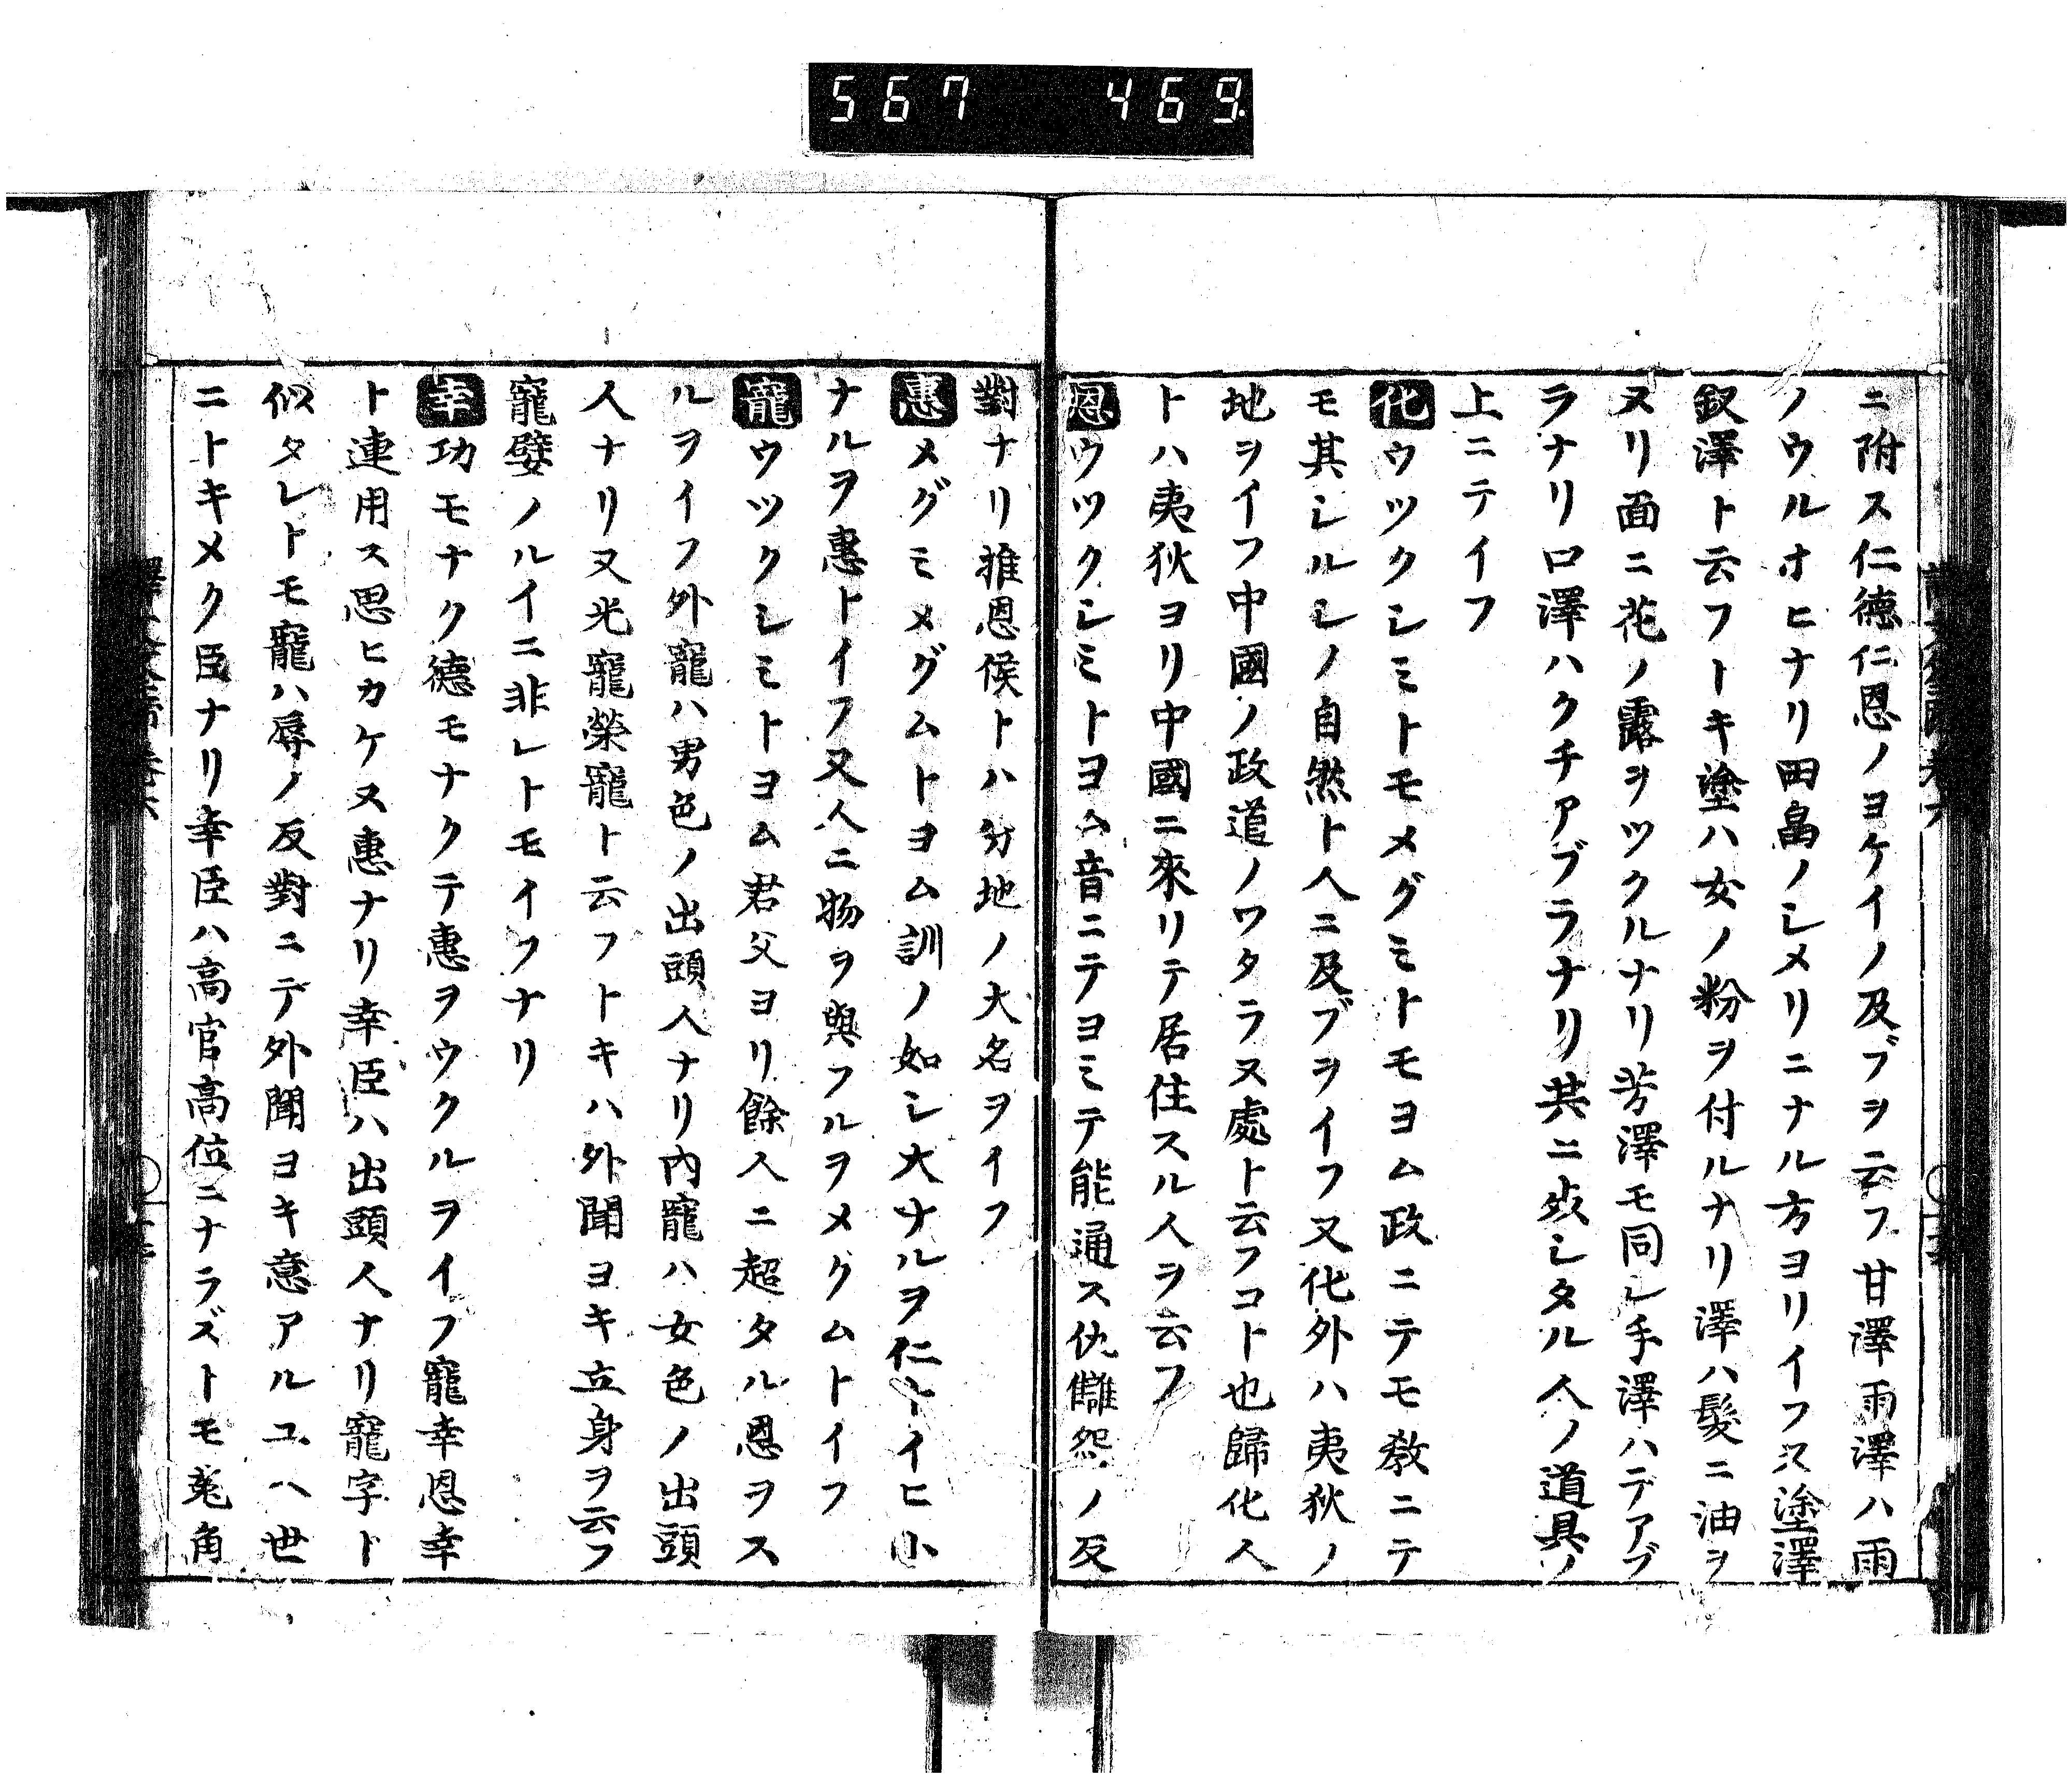 567 469
ニ附ス仁德仁恩ノヨケイノ及ブヲ云フ甘澤雨澤ハ雨
ノウルオヒナリ田畠ノシメリニナル方ヨリイフ又塗澤
釵澤ト云フトキ塗ハ女ノ粉ヲ付ルナリ澤ハ髮ニ油ヲ
ヌリ面ニ花ノ露ヲツクルナリ芳澤モ同シ手澤ハテアブ
ラナリ口澤ハクチアブラナリ共ニ死シタル人ノ道具ノ
上ニテイフ
化ウツクシミトモメグミトモヨム政ニテモ教ニテ
モ其シルシノ自然ト人ニ及ブヲイフ又化外ハ夷狄ノ
地ヲイフ中國ノ政道ノワタラヌ處ト云フコト也歸化人
トハ夷狄ヨリ中國ニ來リテ居住スル人ヲ云フ
恩ウツクシミトヨム音ニテヨミテ能通ス仇讎怨ノ反
對ナリ推恩侯トハ分地ノ大名ヲイフ
惠メグミメグムトヨム訓ノ如シ大ナルヲ仁トイヒ小
ナルヲ惠トイフ又人ニ物ヲ與フルヲメグムトイフ
寵ウツクシミトヨム君父ヨリ餘人ニ超タル恩ヲス
ルヲイフ外寵ハ男色ノ出頭人ナリ內寵ハ女色ノ出頭
人ナリ又光寵榮寵ト云フトキハ外聞ヨキ立身ヲ云フ
寵嬖ノルイニ非レトモイフナリ
幸功モナク德モナクテ惠ヲウクルヲイフ寵幸恩幸
ト連用ス思ヒカケヌ惠ナリ幸臣ハ出頭人ナリ寵字ト
似タレトモ寵ハ辱ノ反對ニテ外聞ヨキ意アルユヘ世
ニトキメク臣ナリ幸臣ハ高官高位ニナラズトモ兎角